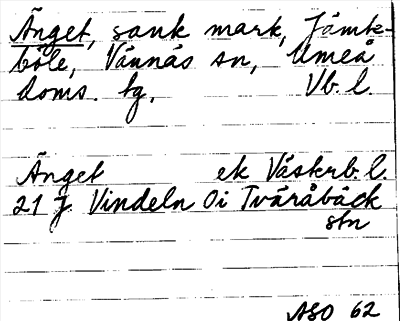 Änget, sank mark, Jämte-
böle, Vännäs sn, Umeå
doms. tg, Vb. l.
Änget ek Västerb. l.
21 J Vindeln Öi Tväråbäck
stn
ASO 62